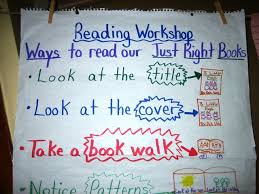 Reading Workshop
Ways to read our Just Right Books
• Look at the title
• Look at the cover
• Take a book walk
• Notice Patterns